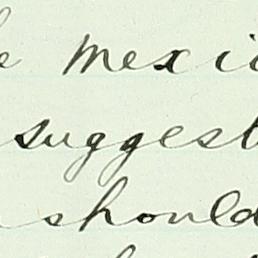 e Mexic
suggest
should